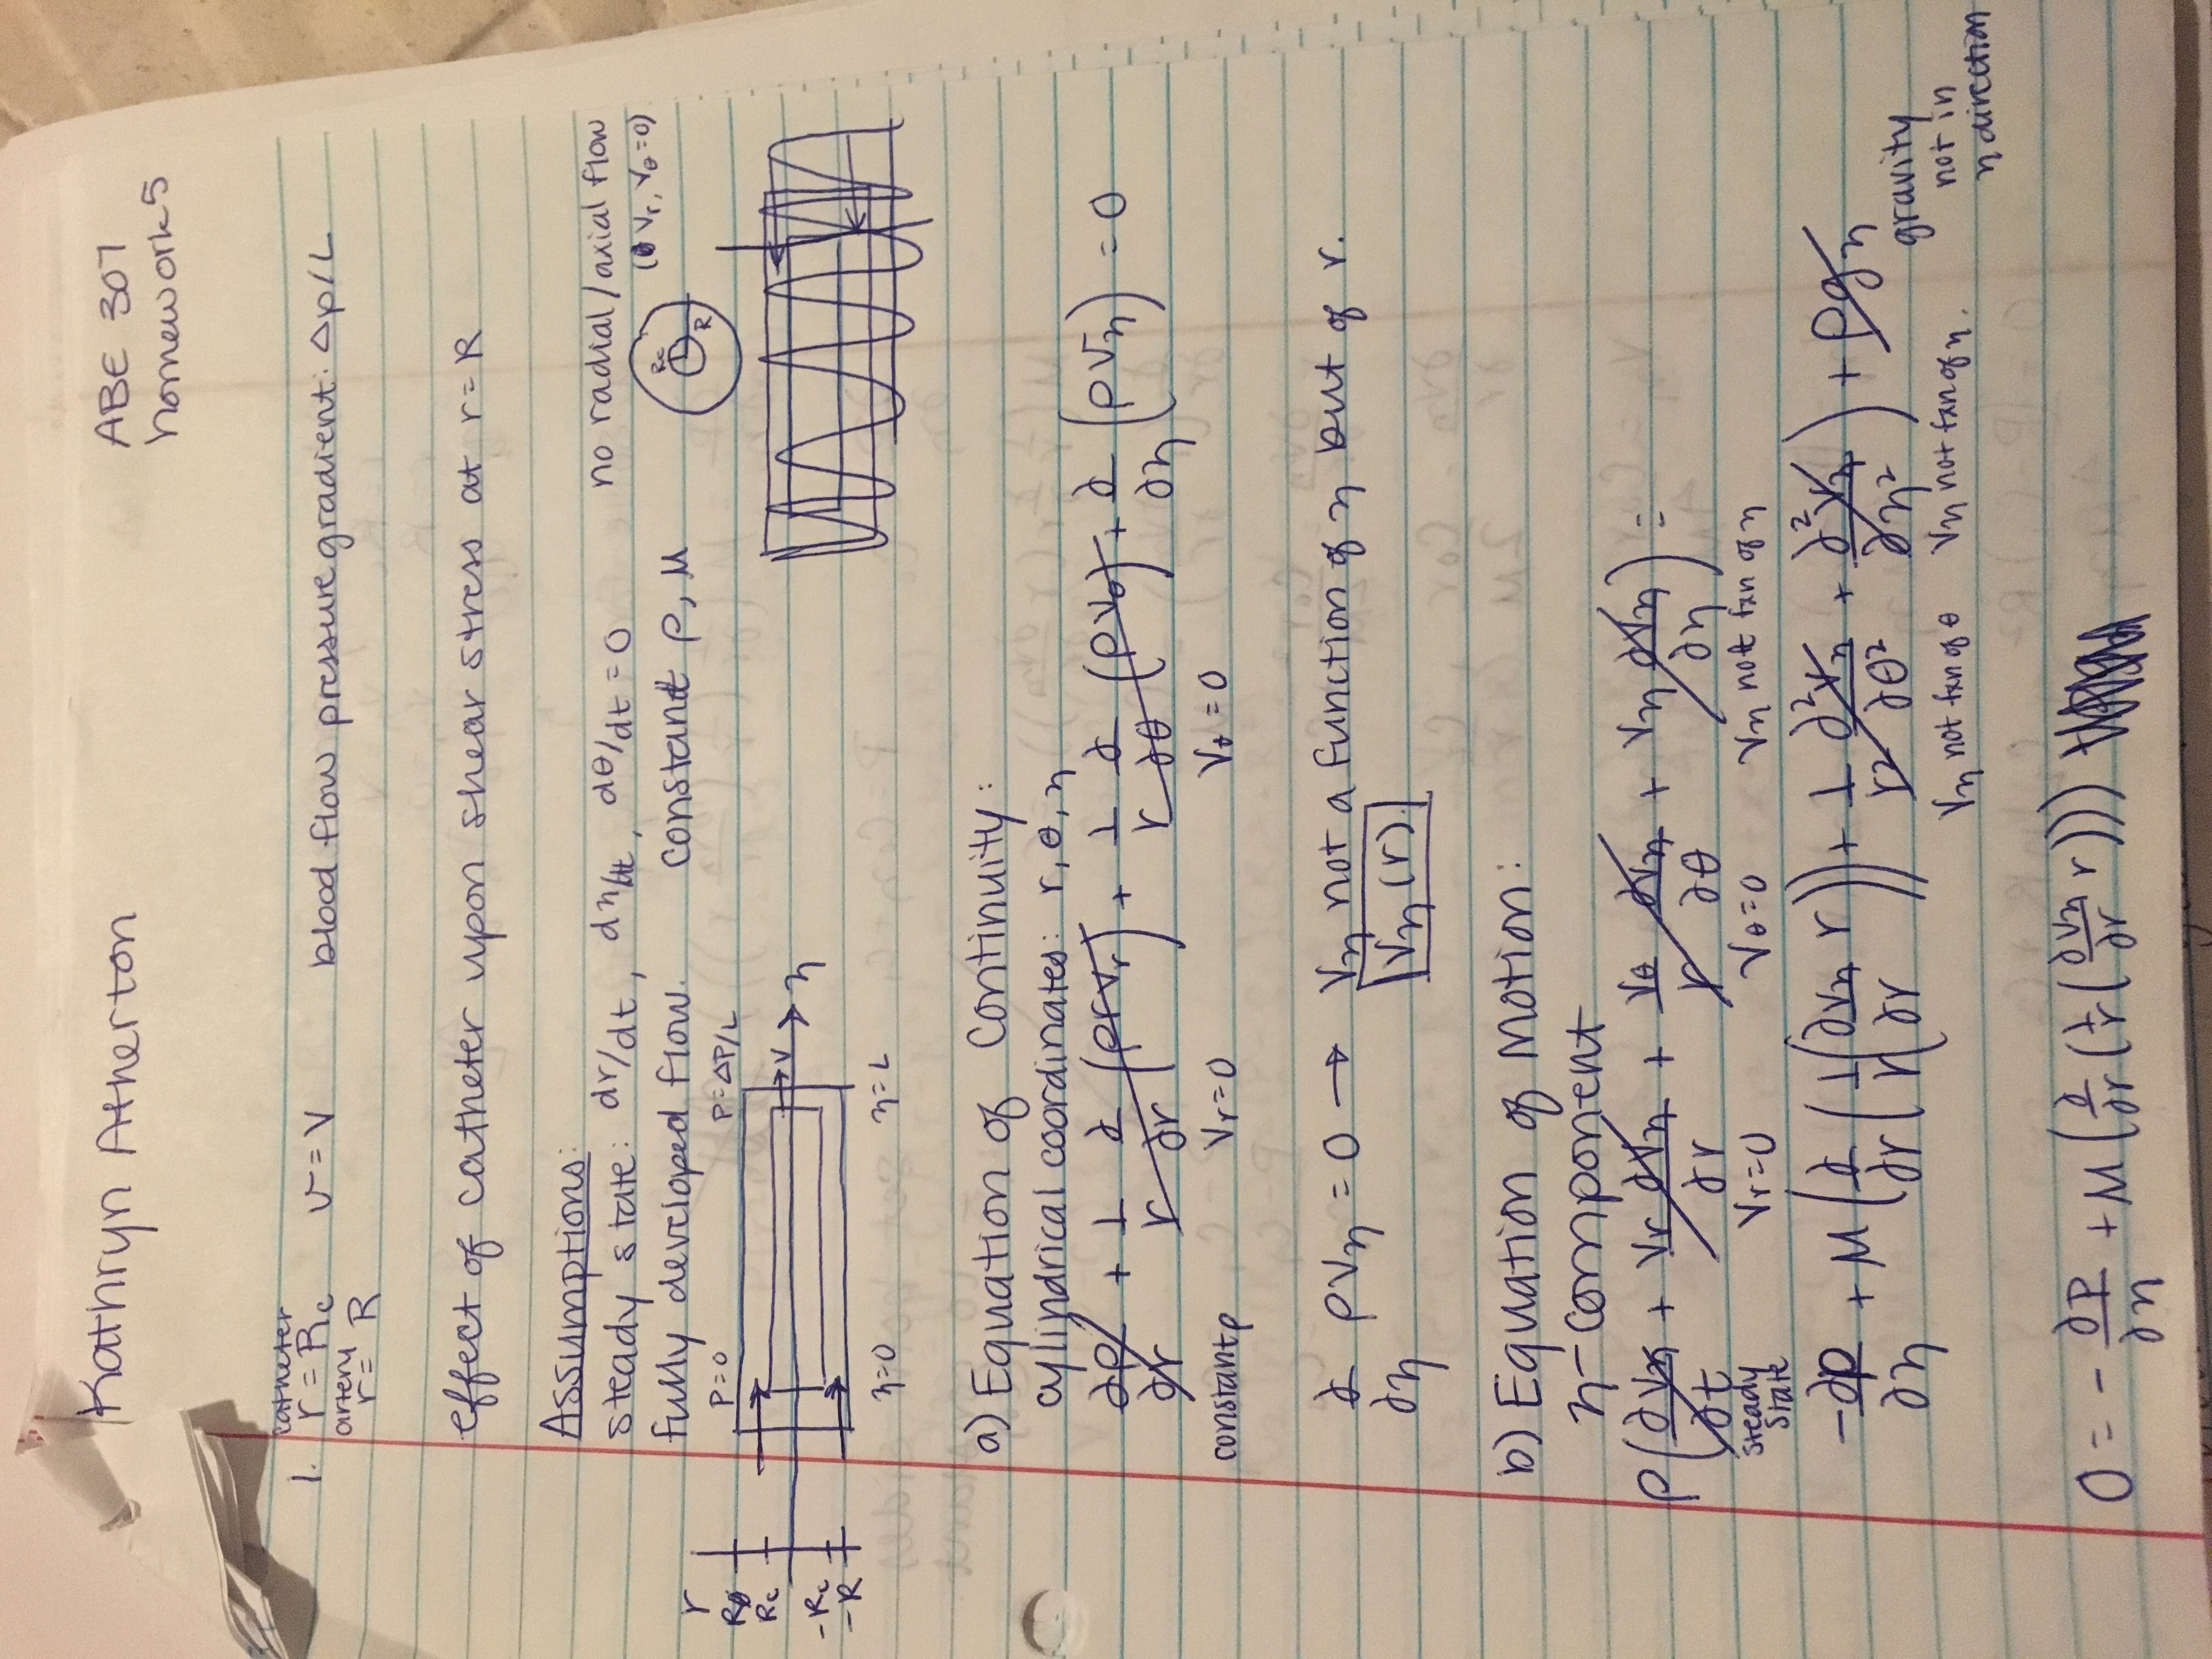 Kathryn Atherton
ABE 307
homework 5
1. catheter
r = Rc    v = V    blood flow pressure gradient: Δp/L
artery
r = R
effect of catheter upon shear stress at r = R
Assumptions:
steady state: dr/dt, dz/dt, dθ/dt = 0    no radial/axial flow
(vr, vθ = 0)
fully developed flow.    constant ρ, μ
r
R
Rc
-Rc
-R
P = 0    P = ΔP/L
→ V
z
z = 0    z = L
Rc
R
a) Equation of Continuity:
cylindrical coordinates: r, θ, z
∂ρ/∂r + 1/r ∂/∂r (ρrvr) + 1/r ∂/∂θ (ρvθ) + ∂/∂z (ρvz) = 0
constant ρ    Vr = 0    Vθ = 0
∂/∂z ρVz = 0 → Vz not a function of z but of r.
Vz (r)
b) Equation of Motion:
z-component
ρ(∂Vz/∂t + Vr ∂Vz/∂r + Vθ/r ∂Vz/∂θ + Vz ∂Vz/∂z) =
steady state    Vr = 0    Vθ = 0    Vz not fxn of z
-∂p/∂z + μ(∂/∂r (1/r (∂Vz/∂r r)) + 1/r² ∂²Vz/∂θ² + ∂²Vz/∂z²) + ρgz
Vz not fxn of θ    Vz not fxn of z.    gravity not in z direction
0 = -∂P/∂z + μ(∂/∂r (1/r (∂Vz/∂r r)))